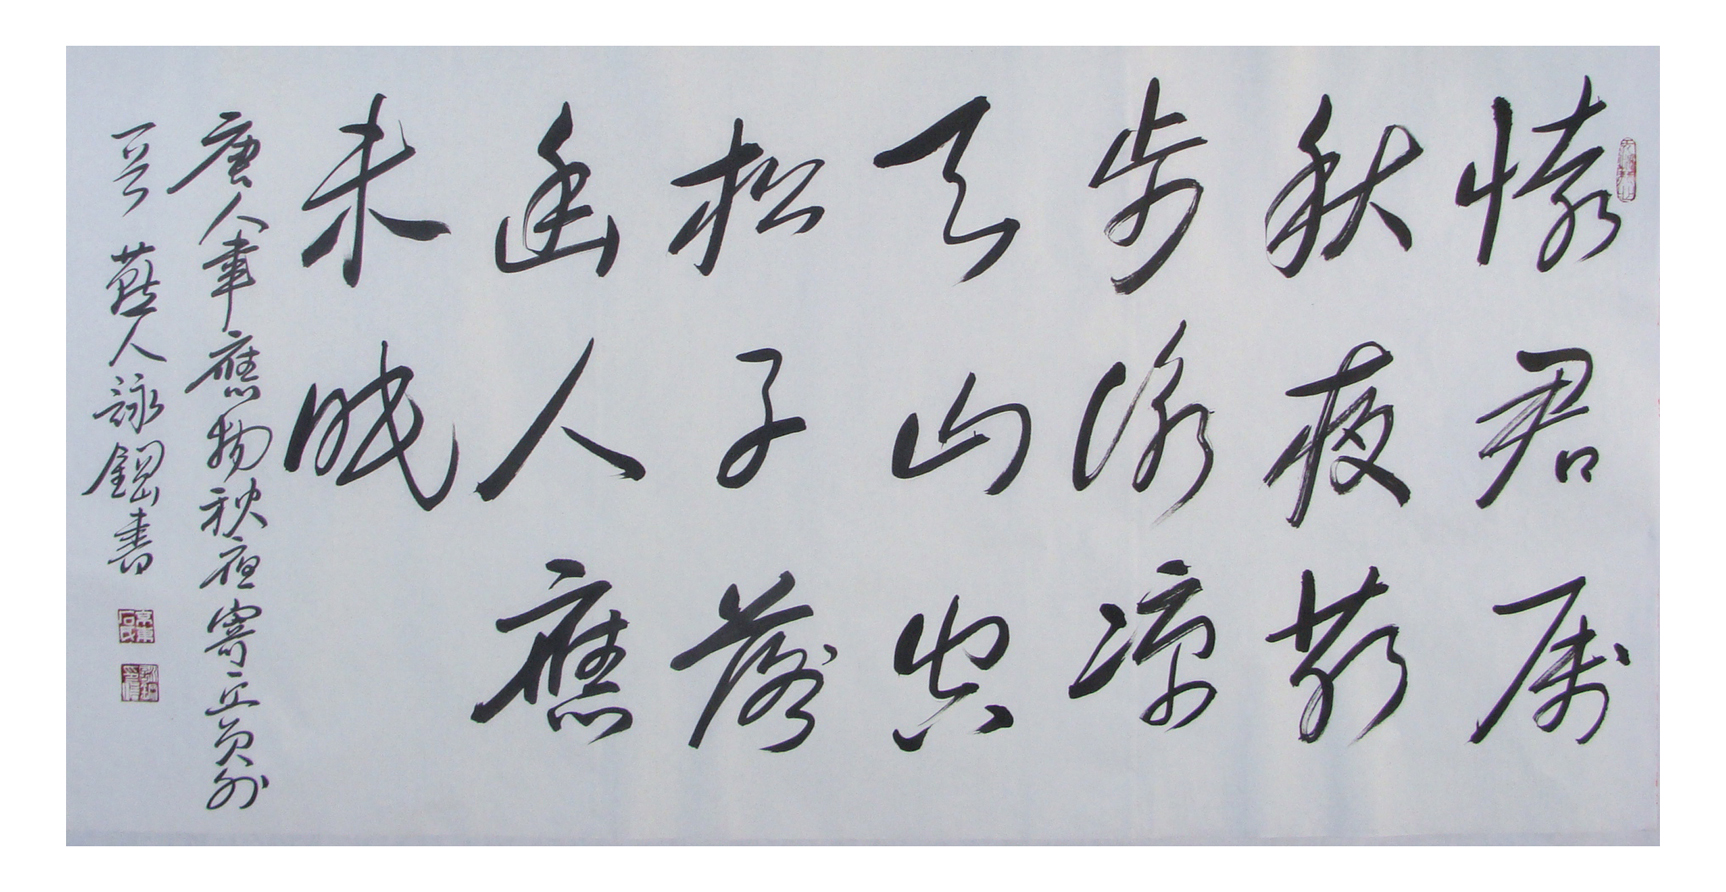 懷君屬
秋夜散
步詠涼
天山空
松子落
幽人應
未眠
唐人韋應物秋夜寄丘員外
一首 燕人詠鋼書